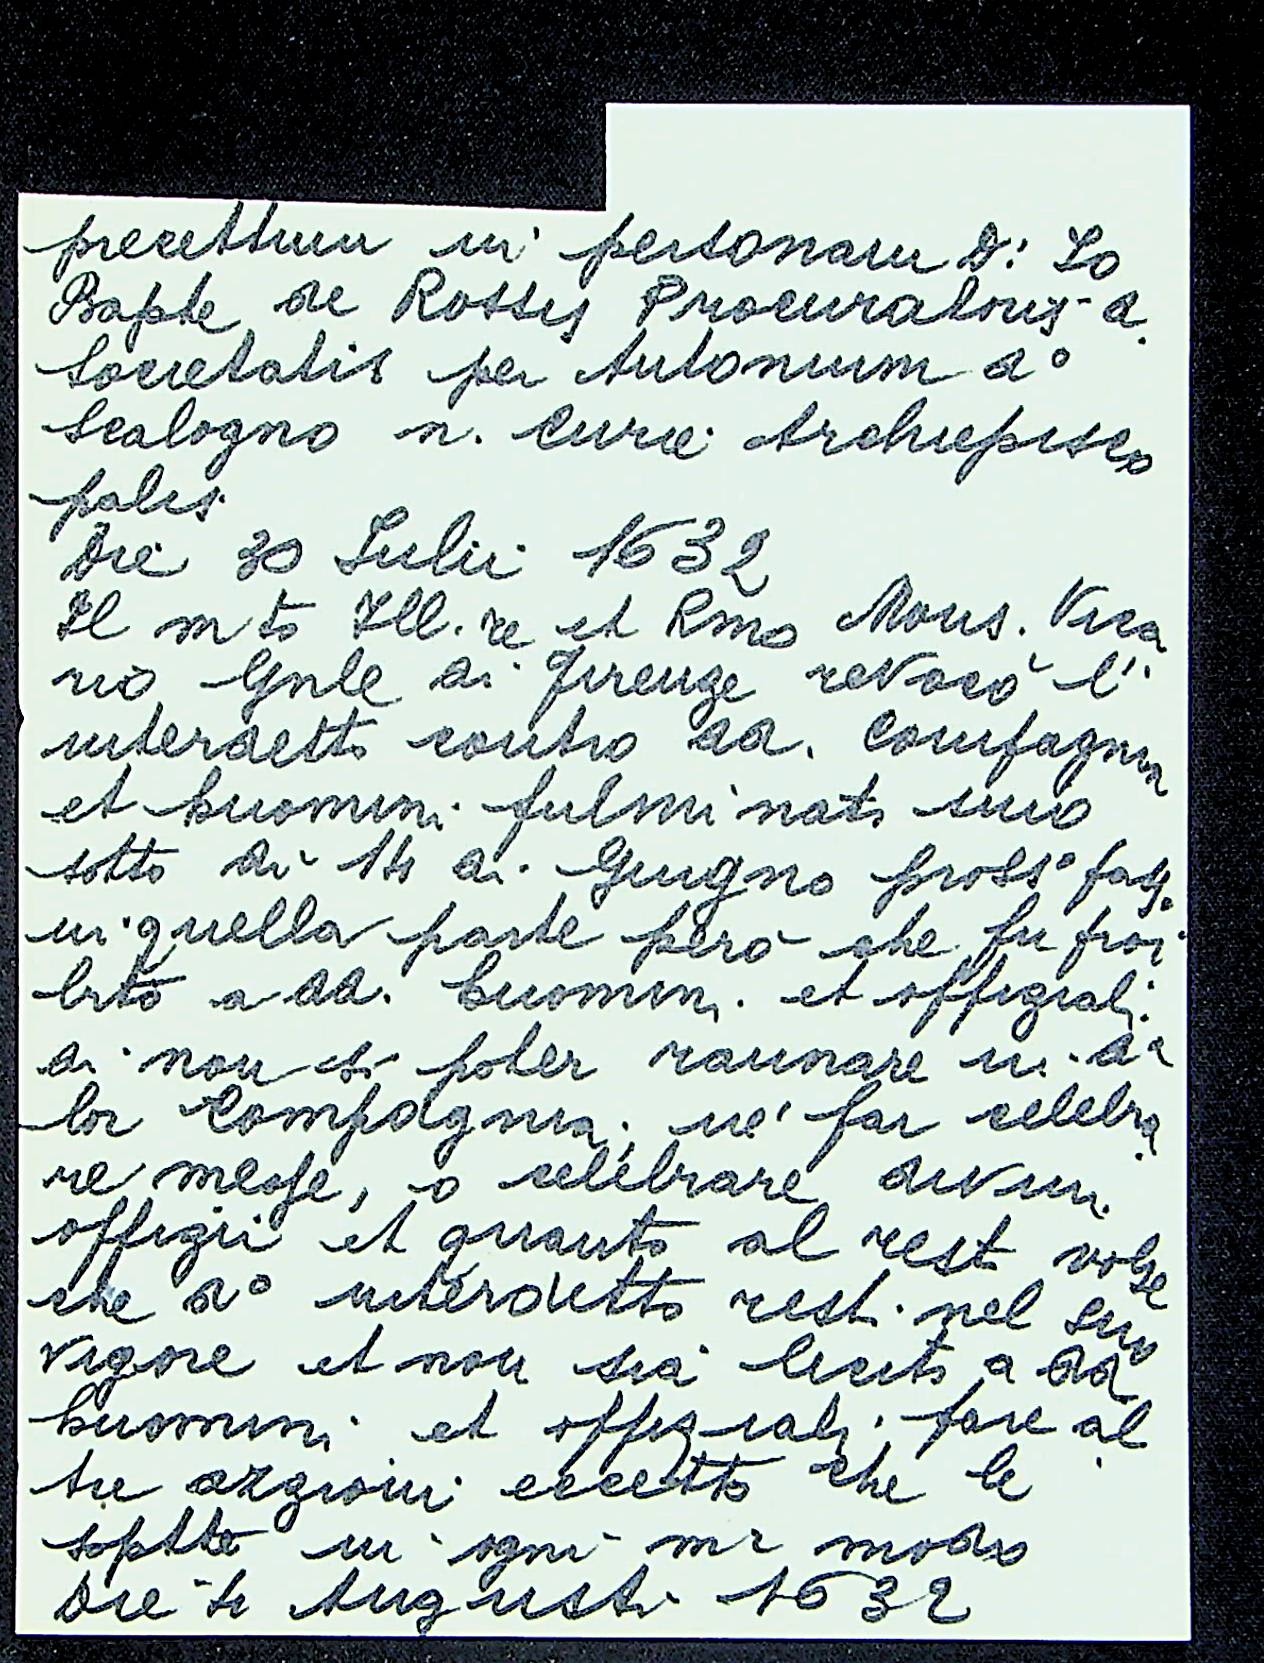 precettum in personam D: Lo
Bapte de Rossis Procuratoris d.
Societatis per Antonium d°
Scalogno n. Curie Archiepisco
palis
Die 30 Iulii 1632
Il mto Ill.re et Rmo Mons. Vica
rio Gnle di Firenze revocò l'
interdetto contro dd. Compagnia
et huomini fulminato sino
sotto dì 14 di Giugno pross° pass.
in quella parte però che fu proi
bito a dd. huomini et offiziali
di non si poter raunare in da
lor Compagnia, né far celebra
re messe, o celebrare divini
offizii et quanto al resto volse
che d° interdetto resti nel suo
vigore et non sia lecito a dd
huomini et offiziali fare al
tre azzioni eccetto che le
soptte in ogni mr modo
Die 4 Augusti 1632